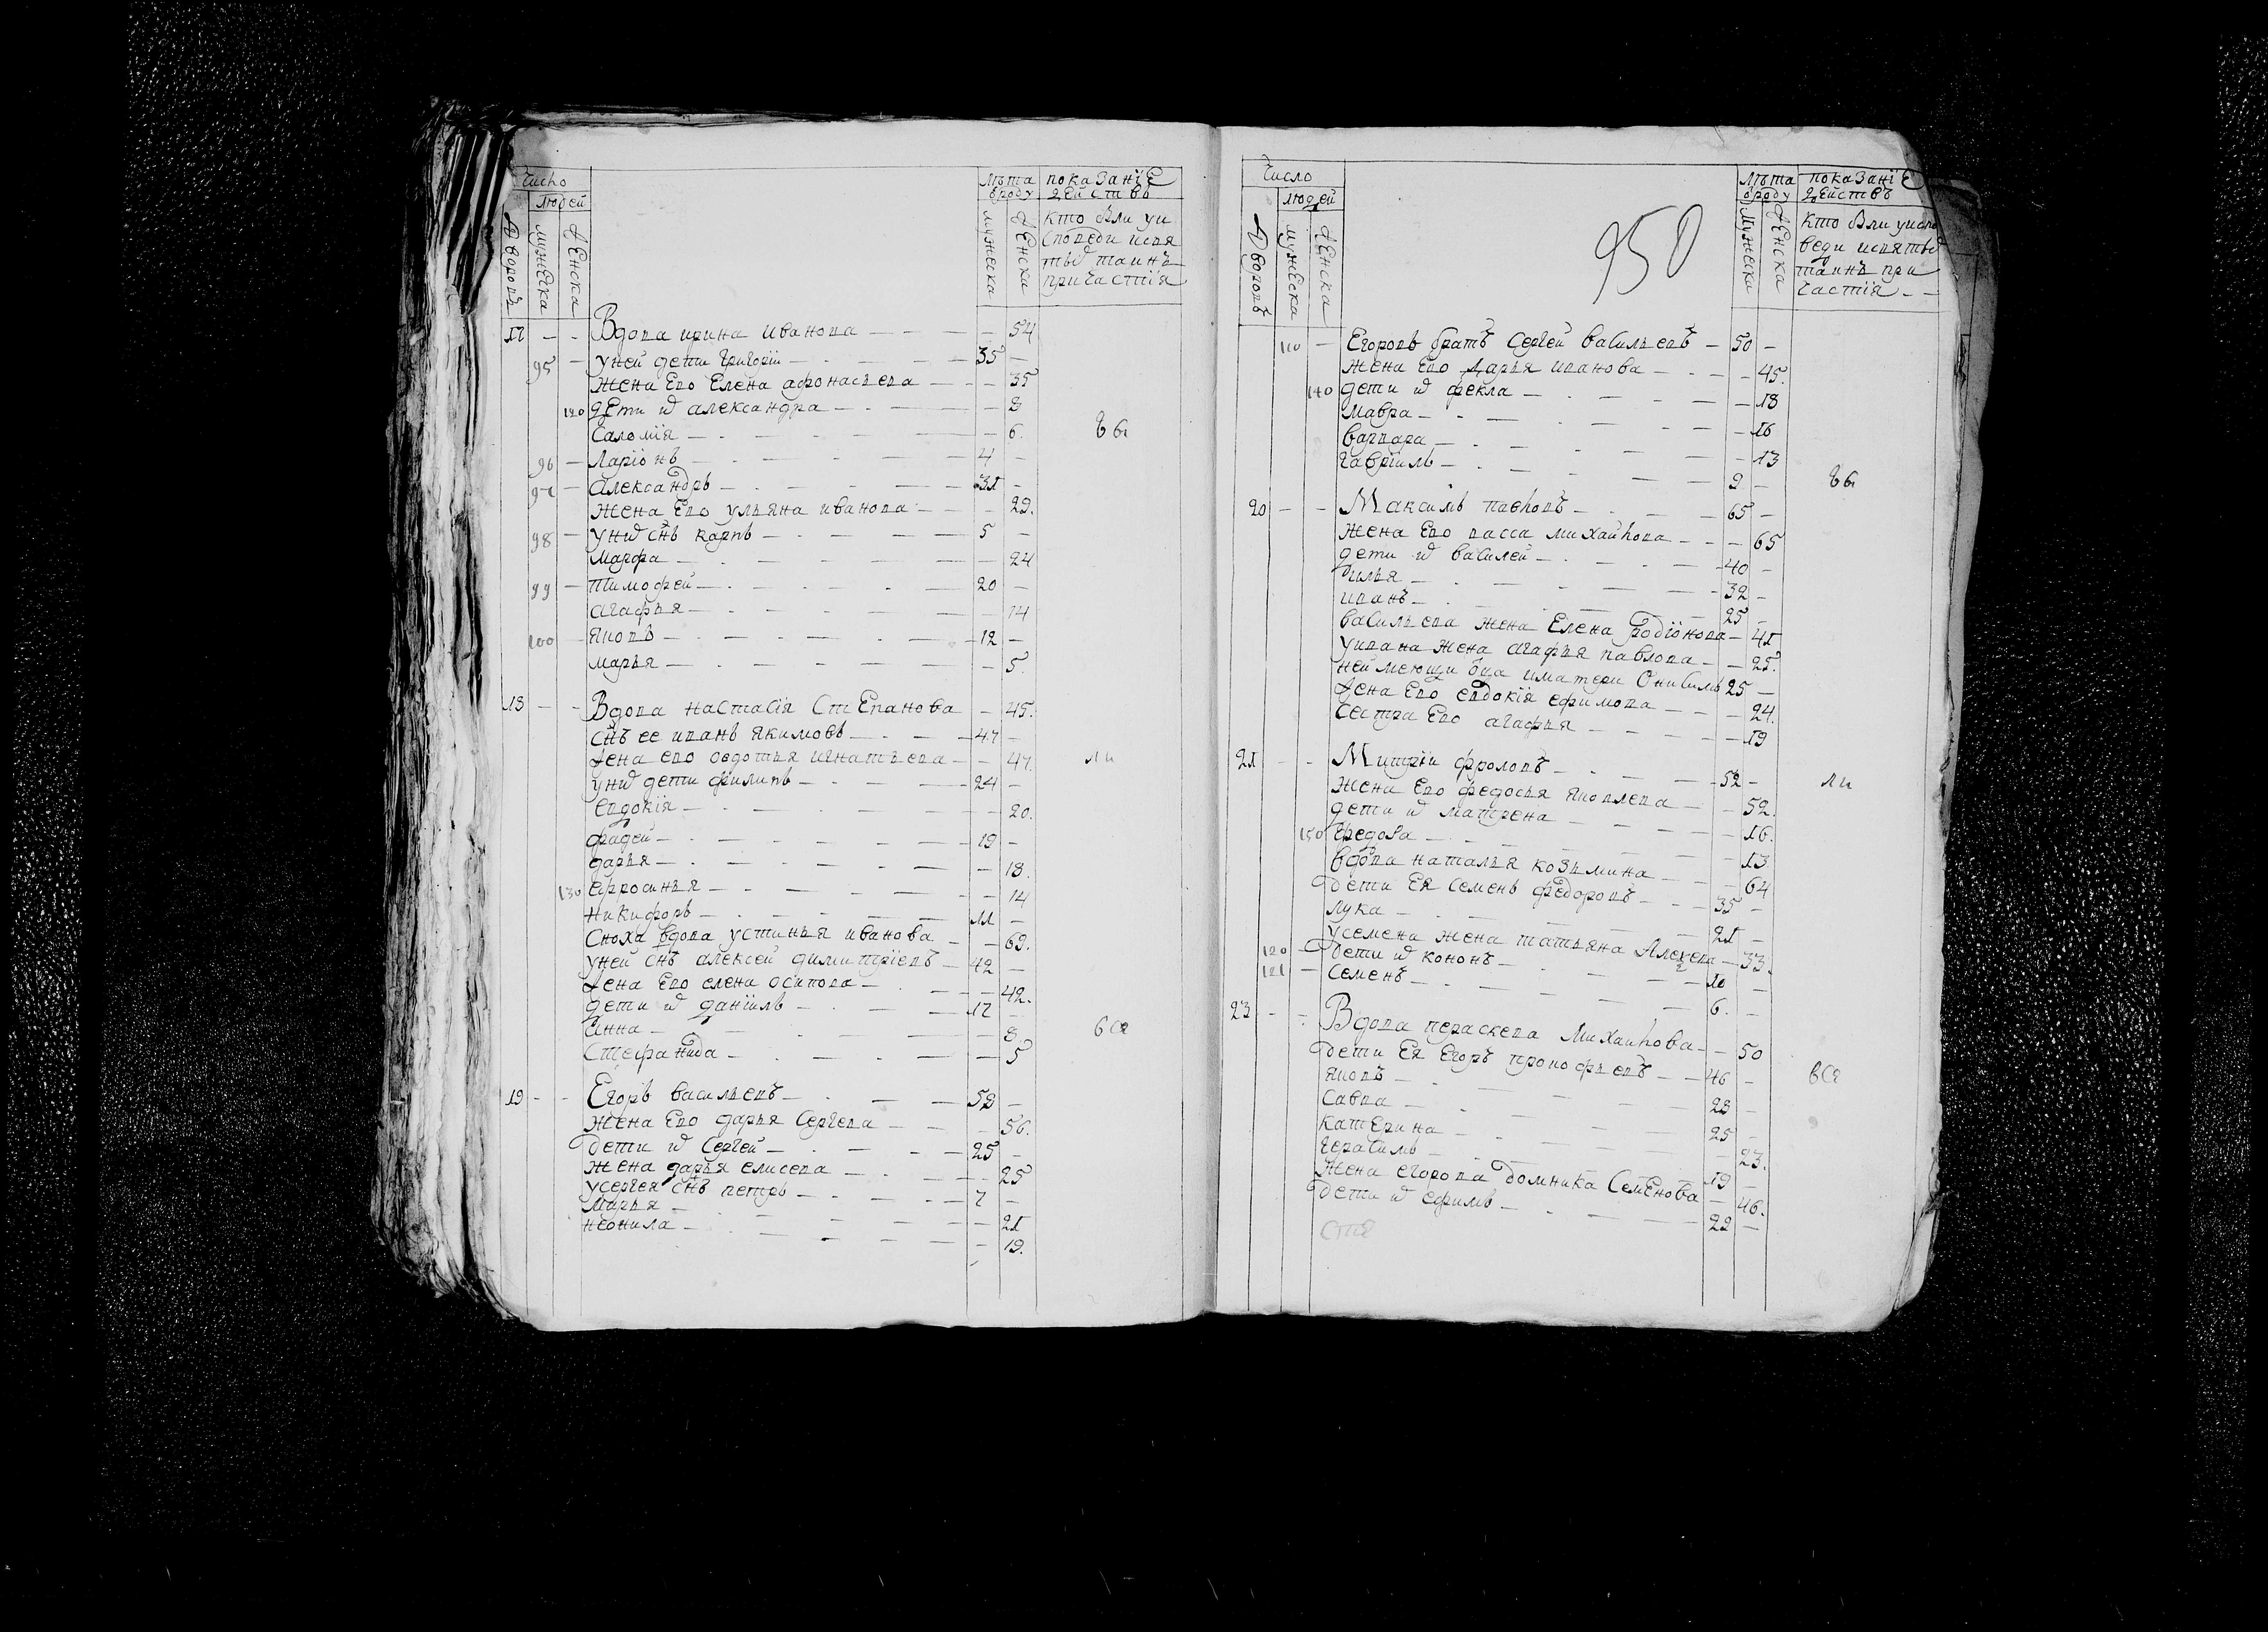 Число
Людей
Дворовъ
мужеска
женска
Лѣта
вроду
мужеска
женска
показанїе
действъ
кто были уи
споведи исвя
тыхъ таинъ
причастїя
17 — — Вдова ирина иванова — 54
95 — уней дети григорїй — 35 —
жена Ево Елена афонасьева — 35
120 дети ихъ александра — 8
Саломїя — 6
были
96 — Ларїонъ — 4 —
97 — александръ — 31 —
жена Ево ульяна иванова — 29.
98 — унихъ снъ карпъ — 5 —
Марфа — 24
99 — тимофей — 20 —
агафья — 14
100 — яковъ — 12 —
марья — 5.
18 — — Вдова настасїя Степанова — 45.
снъ ее иванъ якимовъ — 47 —
жена ево овдотья игнатьева — 47.
унихъ дети филипъ — 24 —
Евдокїя — 20.
фадей — 19 —
дарья — 18.
130 ефросинья — 14
никифоръ — 11 —
Сноха вдова устинья иванова — 69.
уней снъ алексей димитрїевъ — 42 —
жена Ево елена осипова — 42.
дети ихъ данїилъ — 17 —
анна — 8
все
Стефанида — 5
19 — — Егоръ васильевъ — 58 —
жена Ево дарья Сергева — 56.
дети ихъ Сергей — 25 —
жена дарья елисева — 25
усергея снъ петръ — 7 —
Марья — 21
неонила — 19.
950
Число
людей
Дворовъ
мужеска
женска
Лѣта
вроду
Мужеска
женска
показанїе
действъ
кто были уиспо
веди исвятыхъ
таинъ при
частїя
110 — Егоровъ братъ Сергей васильевъ — 50 —
жена Ево дарья иванова — 45.
140 дети ихъ фекла — 18
мавра — 16
варвара — 13
гаврїилъ — 9 —
были
20 — — Максимъ павловъ — 65 —
жена Ево васса михайлова — 65
дети ихъ василей — 40 —
илья — 32 —
иванъ — 25 —
васильева жена Елена родїонова — 41
уивана жена агафья павлова — 21.
неимеющи оца иматери Онисимъ 25 —
жена Ево евдокїя ефимова — 24.
сестра Ево агафья — 19
21 — — Митрїй фроловъ — 52 —
жена Ево федосья яковлева — 52.
дети ихъ матрена — 16.
150 федора — 13
вдова наталья козьмина — 64
дети Ея семенъ федоровъ — 35 —
лука — 21 —
усемена жена татьяна Алекева — 33.
120 — дети ихъ кононъ — 10 —
121 — семенъ — 6. —
23 — — Вдова параскева Михайлова — 50
дети Ея Егоръ прокофьевъ — 46 —
все
яковъ — 28 —
савва — 25 —
катерина — 23.
герасимъ — 19 —
жена егорова домника Семенова — 46.
дети ихъ ефимъ — 22 —